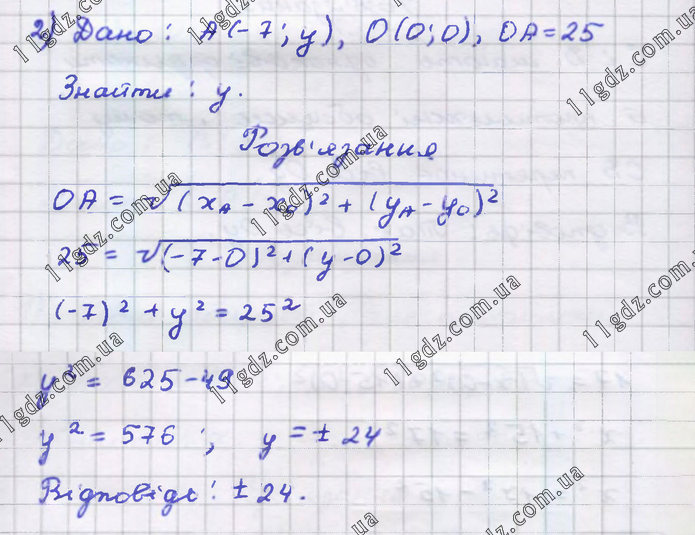 2) Дано: А(-7; y), О(0;0), ОА=25
Знайти: y.
Розв'язання
ОА = √(x_А - x_О)² + (y_А - y_О)²
25 = √(-7-0)² + (y-0)²
(-7)² + y² = 25²
y² = 625 - 49
y² = 576; y = ± 24
Відповідь: ± 24.
11gdz.com.ua
11gdz.com.ua
11gdz.com.ua
11gdz.com.ua
11gdz.com.ua
11gdz.com.ua
11gdz.com.ua
11gdz.com.ua
11gdz.com.ua
11gdz.com.ua